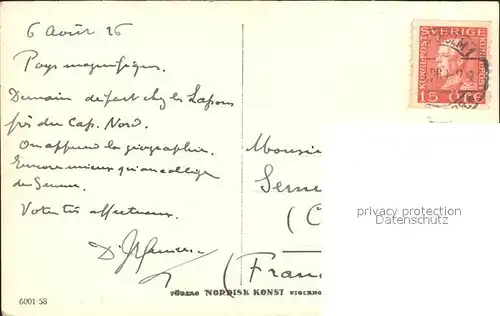 6 Août 26
Pays magnifique.
Demain départ chez les Lapons
près du Cap. Nord.
On apprend la géographie.
Encore mieux qu'au collège
de
Votre très affectueux.
SVERIGE
15 ÖRE
Monsie
Serm
(C
(Fran
privacy protection
Datenschutz
6001/58
FÖRLAG NORDISK KONST STOCKHO